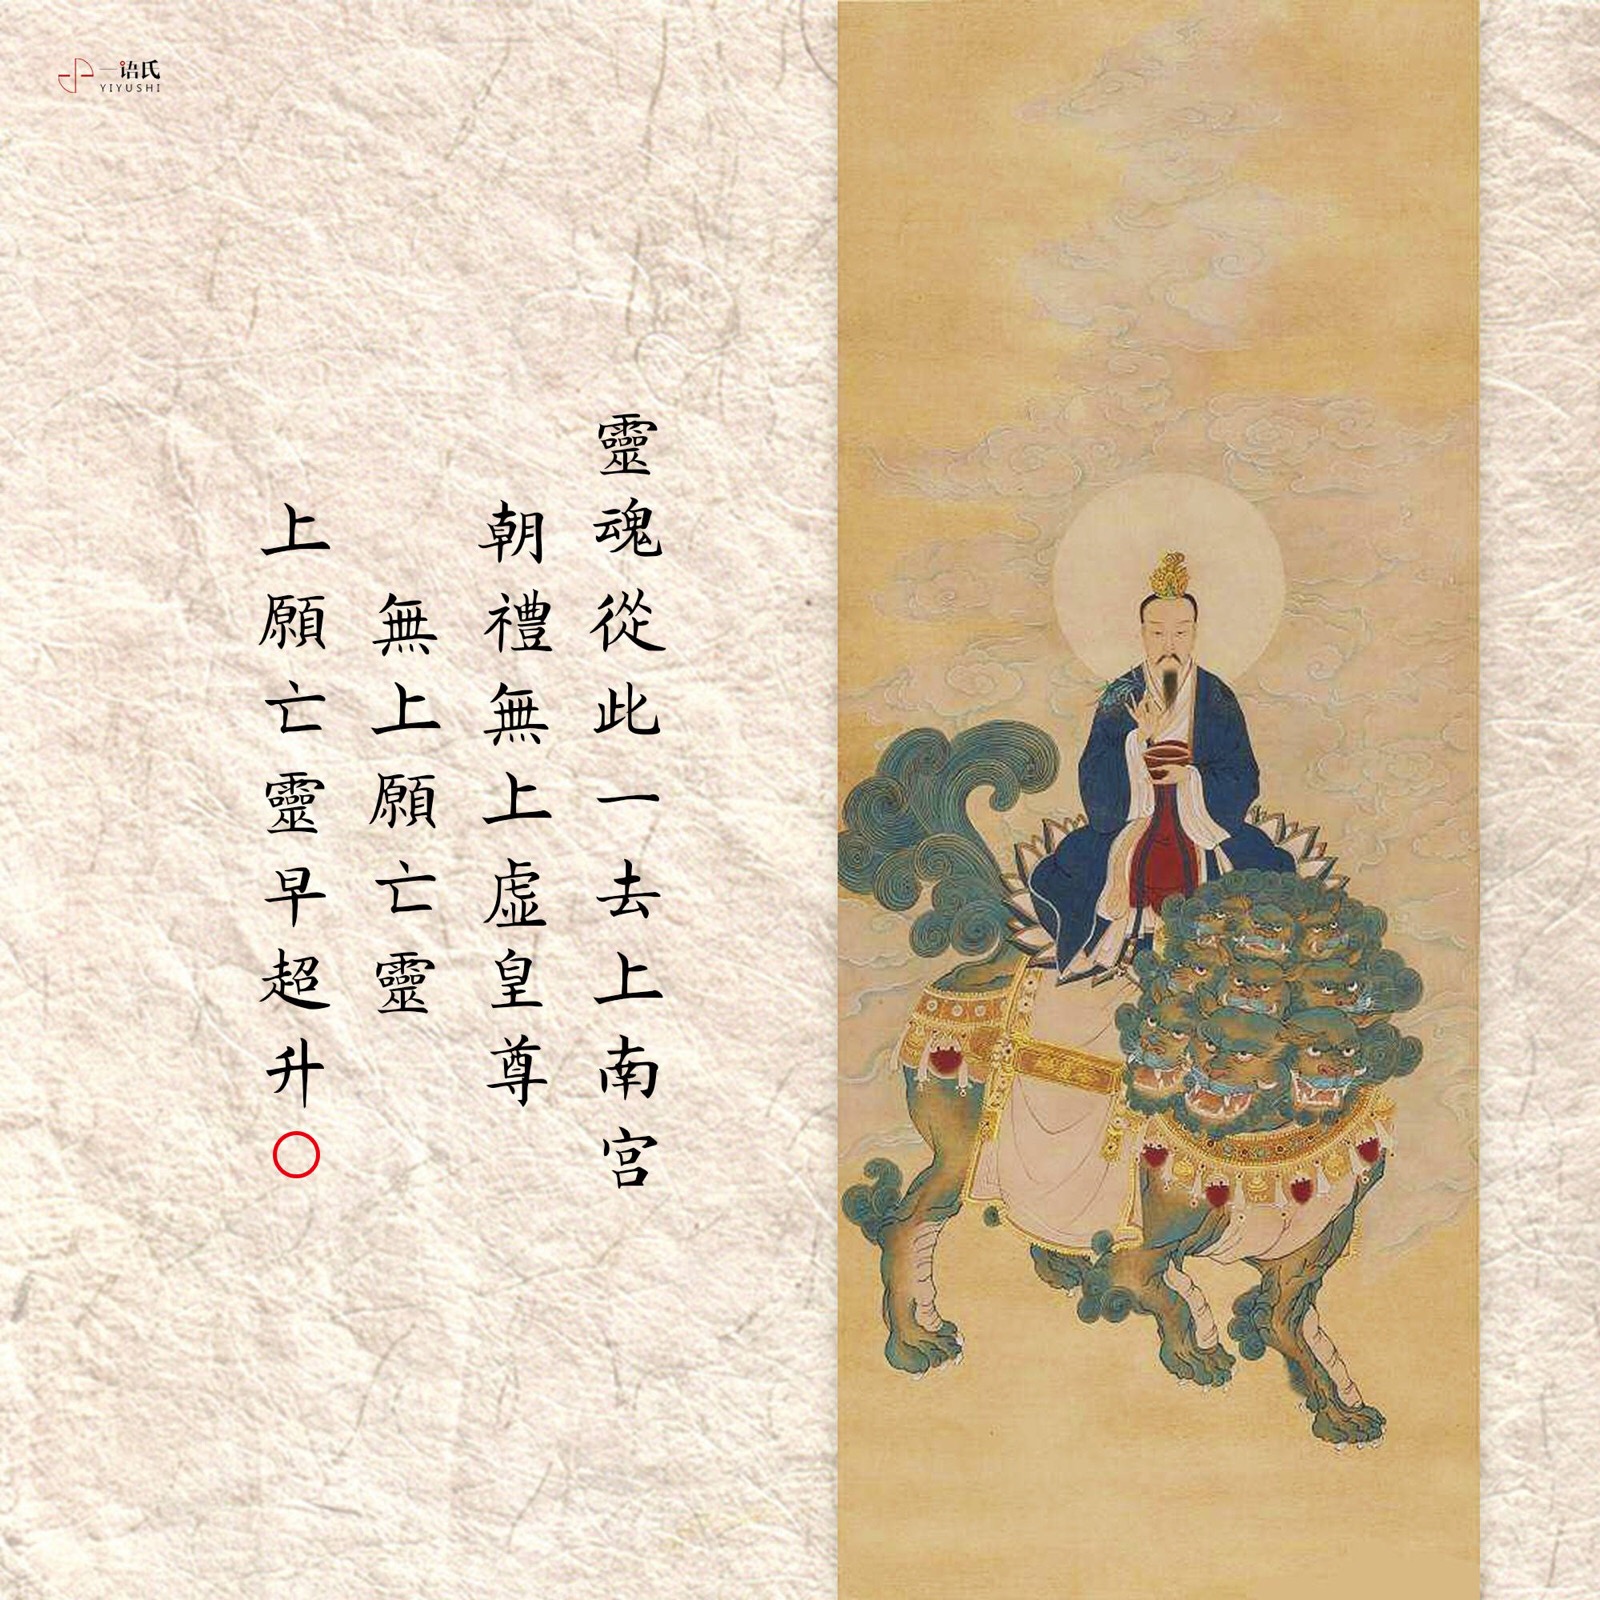 一语氏
YIYUSHI
靈魂從此一去上南宮
朝禮無上虛皇尊
無上願亡靈
上願亡靈早超升〇